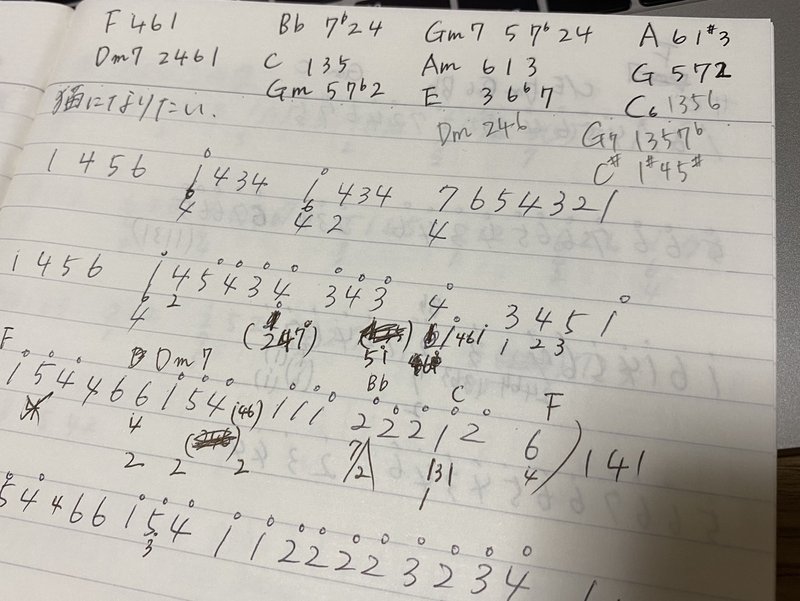 F 461 Bb 7b24 Gm7 57b24 A 61#3
Dm7 2461 C 135 Am 613 G 572
Gm 57b2 E 36b7 C6 1356
猫になりたい. Dm 246 G7 1357b
C# 1#45#
1 4 5 6 1 4 3 4 1 4 3 4 7 6 5 4 3 2 1
4 4 2 4
1 4 5 6 1 4 5 4 3 4 3 4 3 4 3 4 5 1
4 2 1 2 3
F Dm7 51 461
Bb C F
1 5 4 4 6 6 1 5 4 (46) 1 1 1 2 2 2 1 2 6 ) 1 4 1
4 7/2 131 4
2 2 2 1
5 4 4 6 6 1 5 4 1 1 2 2 2 2 3 2 3 4
3